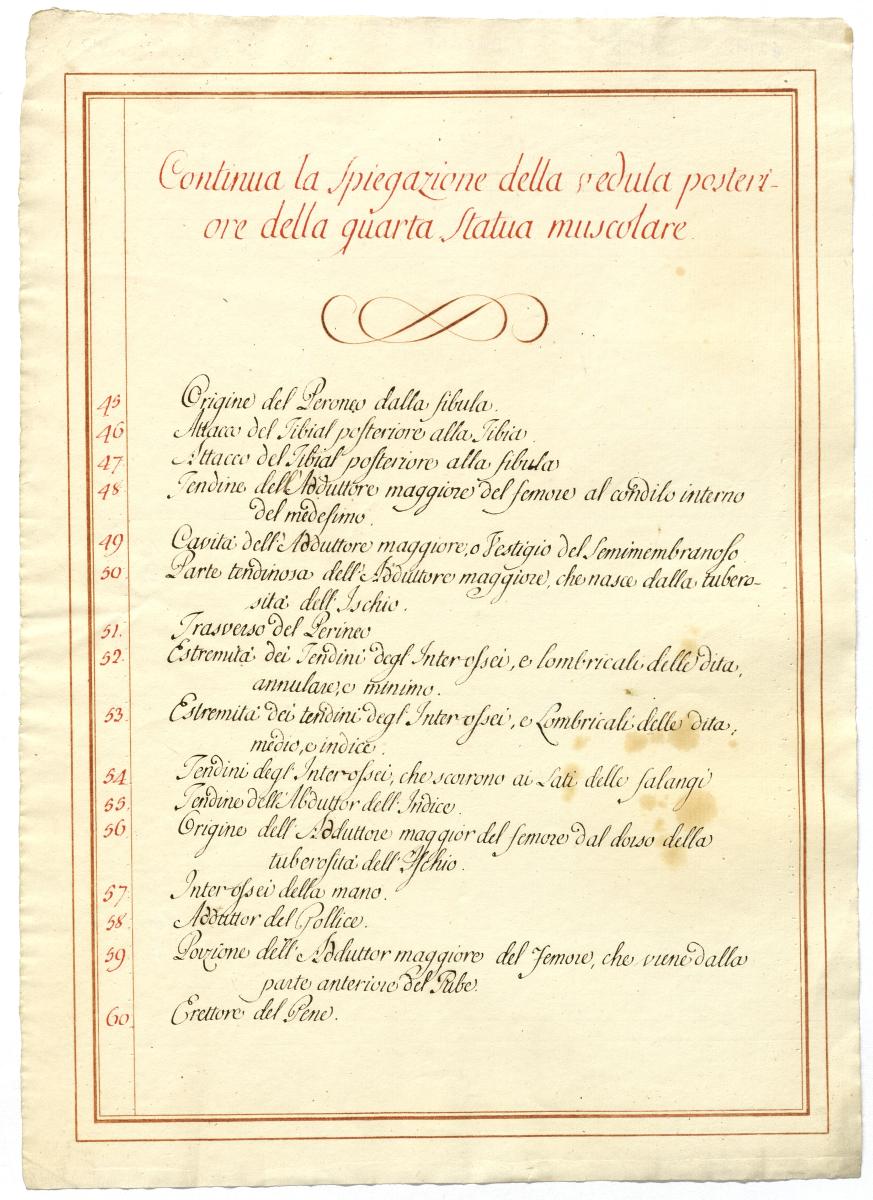 Continua la Spiegazione della veduta posteri-
ore della quarta Statua muscolare
45 Origine del Peroneo dalla fibula.
46 Attacco del Tibial posteriore alla Tibia.
47 Attacco del Tibial posteriore alla fibula
48 Tendine dell'Adduttore maggiore del femore al condilo interno
del medesimo.
49 Cavità dell'Adduttore maggiore, o Vestigio del Semimembranoso.
50. Parte tendinosa dell'Adduttore maggiore, che nasce dalla tubero-
sità dell'Ischio.
51. Trasverso del Perineo
52. Estremità dei Tendini degl'Inter-ossei, e lombricali delle dita,
annulare, e minimo.
53. Estremità dei tendini degl'Inter-ossei, e Lombricali delle dita,
medio, e indice.
54 Tendini degl'Inter-ossei, che scorrono ai Lati delle falangi
55. Tendine dell'Abduttor dell'Indice.
56 Origine dell'Adduttore maggior del femore dal dorso della
tuberosità dell'Ischio.
57 Inter-ossei della mano.
58 Adduttor del Pollice.
59 Porzione dell'Adduttor maggiore del Femore, che viene dalla
parte anteriore del Pube.
60. Erettore del Pene.